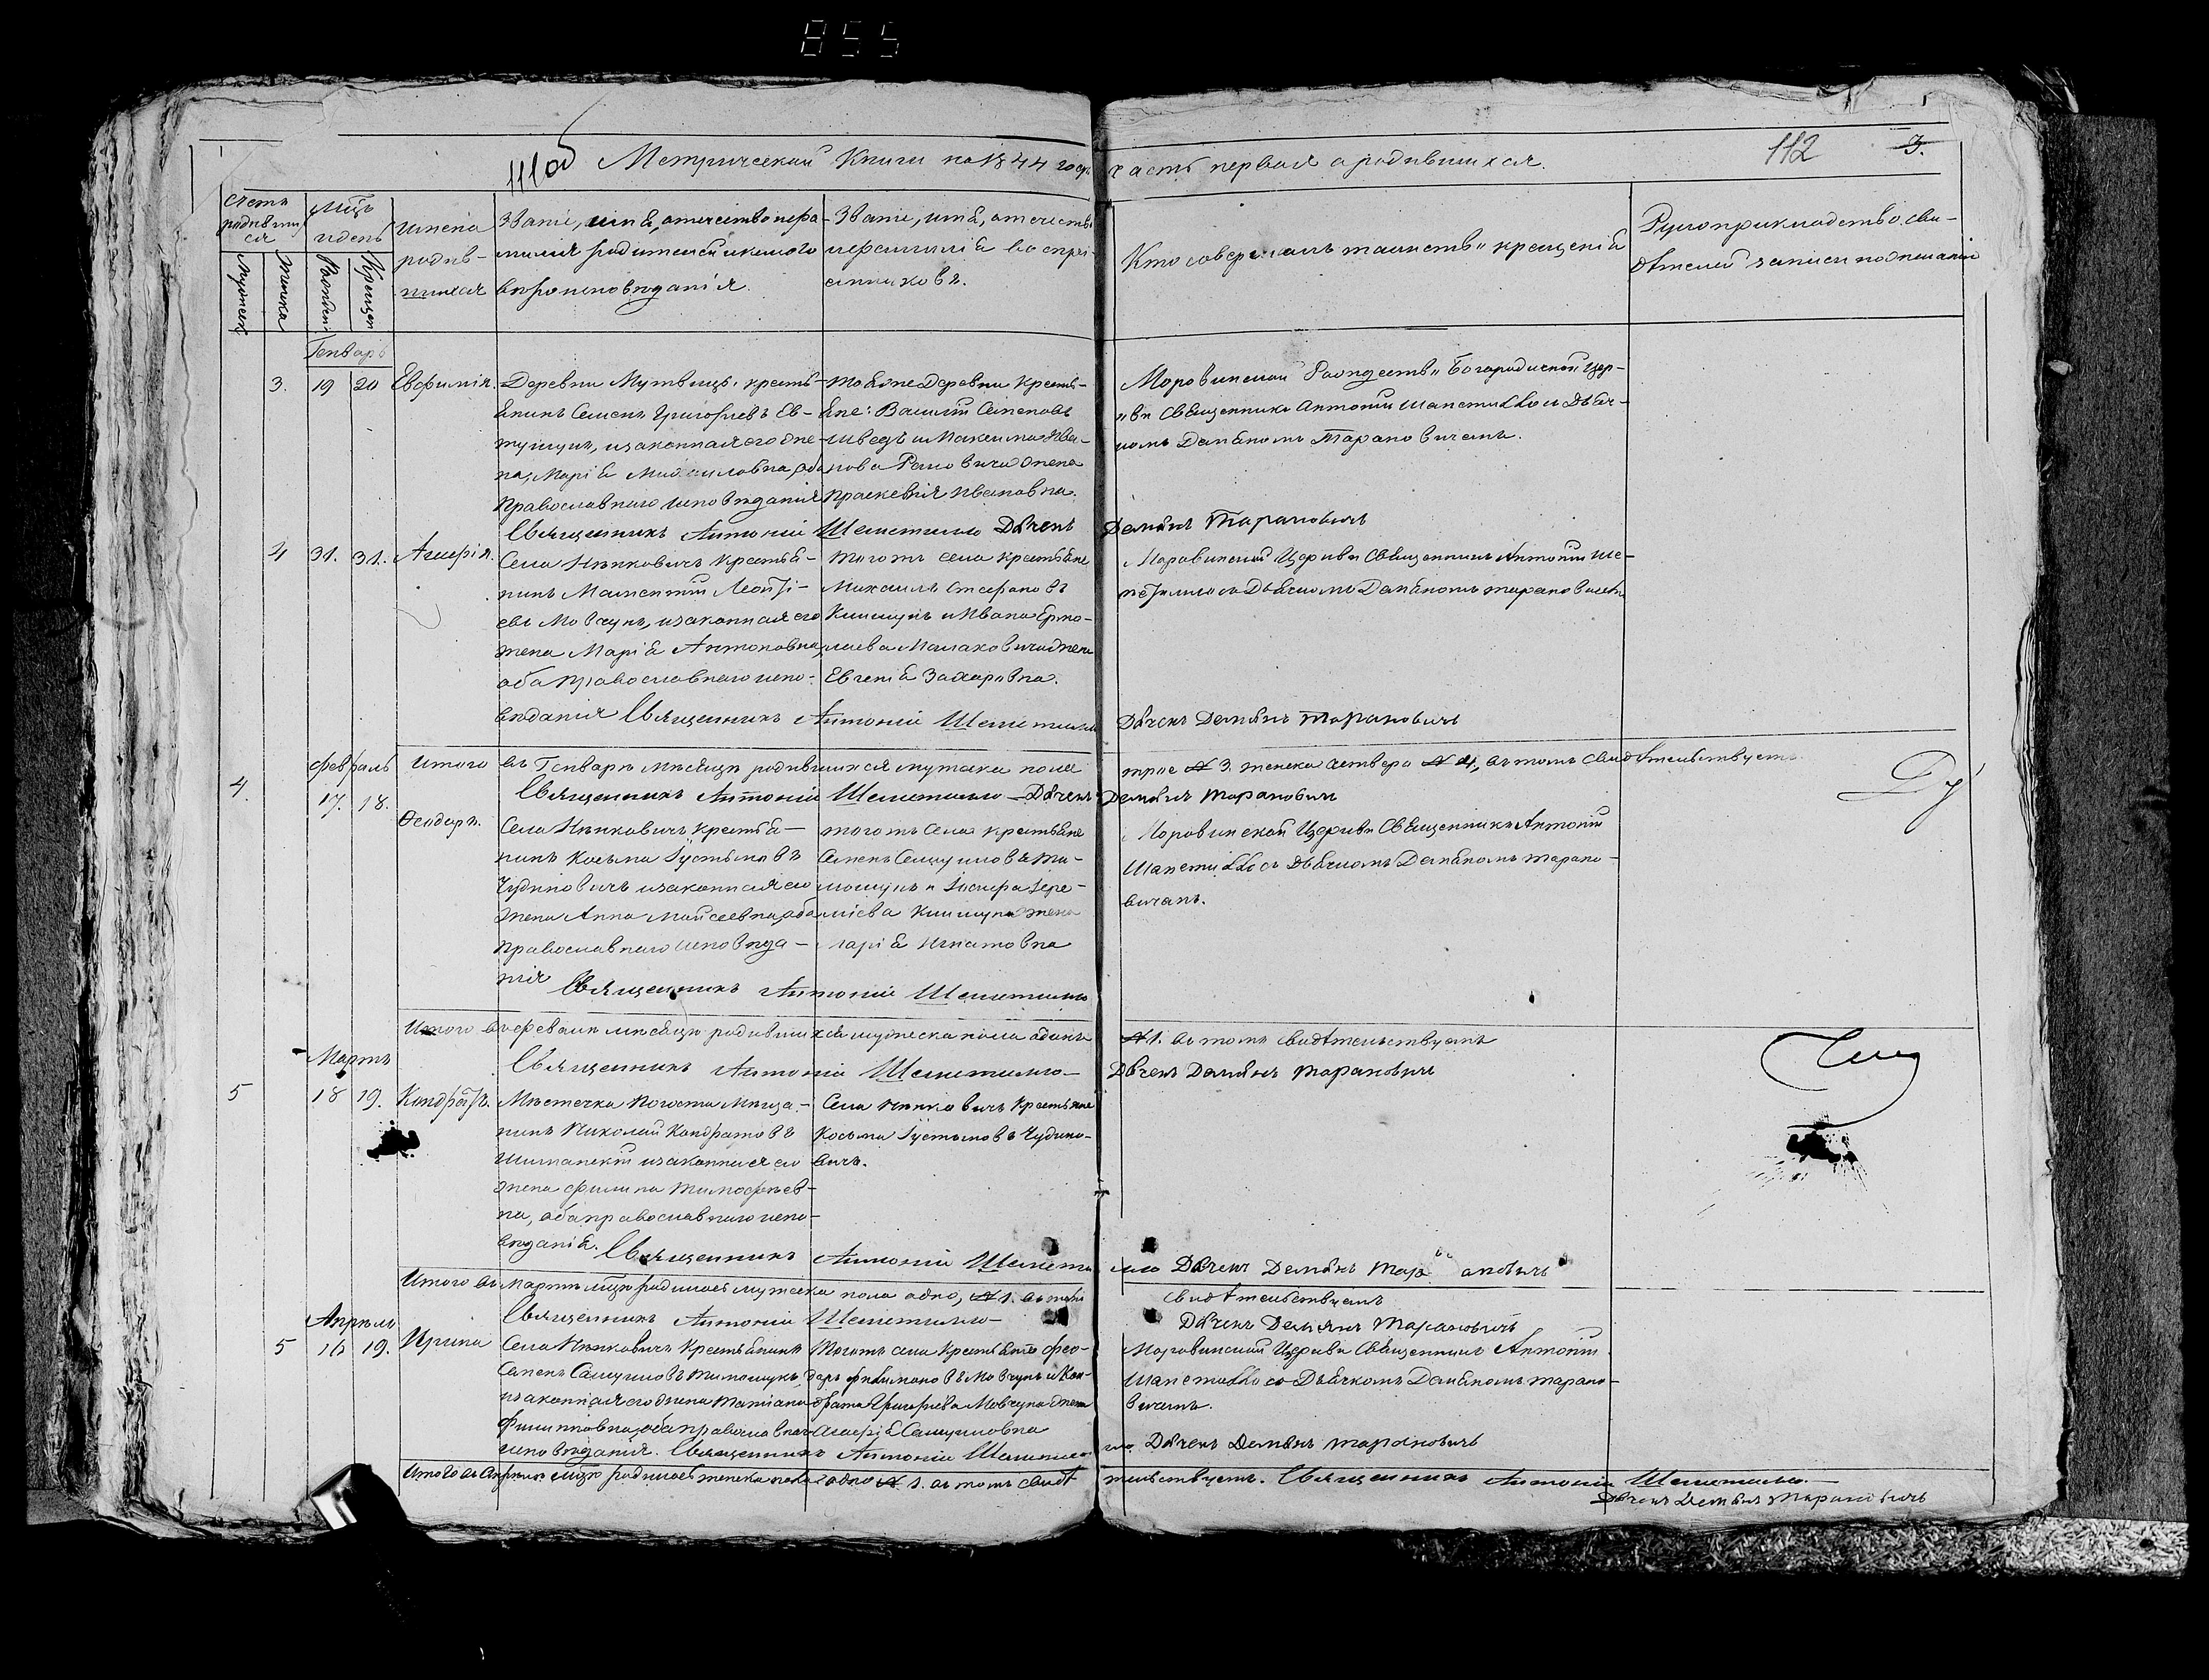 855
111об Метрической Книги на 1844 годъ часть первая о родившихся.
112 3.
Счетъ родившихся
Мужеск
Женска
Мцъ и день
Рожден
Крещен
Имена родив-
шихся
Званіе, имя, отчество и фа-
милія родителей и какого
вѣроисповѣданія.
Званіе, имя, отчество
и фамилія воспрі-
емниковъ.
Кто совершалъ таинство крещенія
Рукоприкладство сви-
дѣтелей записи по желанію
Генварь
3. 19 20 Евфимія.
Деревни Мутвицъ, кресть-
янинъ Семенъ Григорьевъ Ев-
тушукъ, и законная его же-
на, Марія Михаиловна, оба
Православнаго исповѣданія
Тояже Деревни Кресть-
яне: Василій Семеновъ
Шведъ и Максима Ива-
нова жена
Праскевія Ивановна.
Моровинской Рождество Богородичной Цер-
кви Священникъ Антоній Шепетилло съ Дьяч-
комъ Даміаномъ Тарановичемъ.
Священникъ Антоній Шепетилло Дьячекъ Демьянъ Тарановичъ
4 31. 31. Агафія.
Села Нянковичъ Крестья-
нинъ Мамонтій
евъ Мовчунъ, и законная его
жена Марія Антоновна,
оба Православнаго испо-
вѣданія
Тогожъ села крестьяне
Михаилъ Стефановъ
Кишкунъ и Ивана Ермо-
лаева жена
Евгенія Захаровна.
Моровинской Церкви Священникъ Антоній Ше-
петилло съ Дьячкомъ Даміаномъ Тарановичемъ
Священникъ Антоній Шепетилло Дьячекъ Демьянъ Тарановичъ
Итого въ Генварѣ Мѣсяцѣ родившихся мужска пола трое № 3. женска четверо № 4, въ томъ свидѣтельствуемъ.
Священникъ Антоній Шепетилло – Дьячекъ Демьянъ Тарановичъ
Февраль
4. 17. 18. Ѳеодоръ.
Села Нянковичъ крестья-
нинъ Косьма Іустиновъ
Чудиновичъ и законная его
жена Анна Мойсеевна, оба
Православнаго исповѣда-
нія
тогожъ Села крестьяне
Семенъ Самуиловъ Ти-
мошукъ и Іосифа Іере-
міева Кишкуна жена
Марія Игнатовна
Моровинской Церкви Священникъ Антоній
Шепетилло съ Дьячкомъ Даміаномъ Тарано-
вичемъ.
Священникъ Антоній Шепетилло
Итого въ Февралѣ мѣсяцѣ родившихся мужеска пола одинъ № 1. въ томъ свидѣтельствуемъ
Священникъ Антоній Шепетилло – Дьячекъ Демьянъ Тарановичъ
Мартъ
5 18 19. Кондратъ.
Мѣстечка Погоста Мѣща-
нинъ Николай Кондратовъ
Шиманскій и законная его
жена Филипа Тимофеев-
на, оба православнаго испо-
вѣданія.
Села Нянковичъ Крестьяне
Косьма Іустиновъ Чудино-
вичъ.
Священникъ Антоній Шепетилло Дьячекъ Демьянъ Тарановичъ
Итого въ Мартѣ мцѣ родилось мужеска пола одно, № 1. въ томъ свидѣтельствуемъ
Священникъ Антоній Шепетилло – Дьячекъ Демьянъ Тарановичъ
Апрѣль
5 16 19. Ирина
Села Нянковичъ Крестьянинъ
Семенъ Самуиловъ Тимошукъ,
и законная его жена Татіана
Филипповна, оба православнаго
исповѣданія.
Тогожъ села Крестьяне Фео-
доръ Филимоновъ Мовчунъ и Кон-
драта Григорьева Мовчуна жена
Агафія Самуиловна
Моровинской Церкви Священникъ Антоній
Шепетилло со Дьячкомъ Даміаномъ Тарано-
вичемъ.
Священникъ Антоній Шепетилло Дьячекъ Демьянъ Тарановичъ
Итого въ Апрѣлѣ мцѣ родилось женска пола одно № 1. въ томъ свидѣтельствуемъ. Священникъ Антоній Шепетилло.–
Дьячекъ Демьянъ Тарановичъ